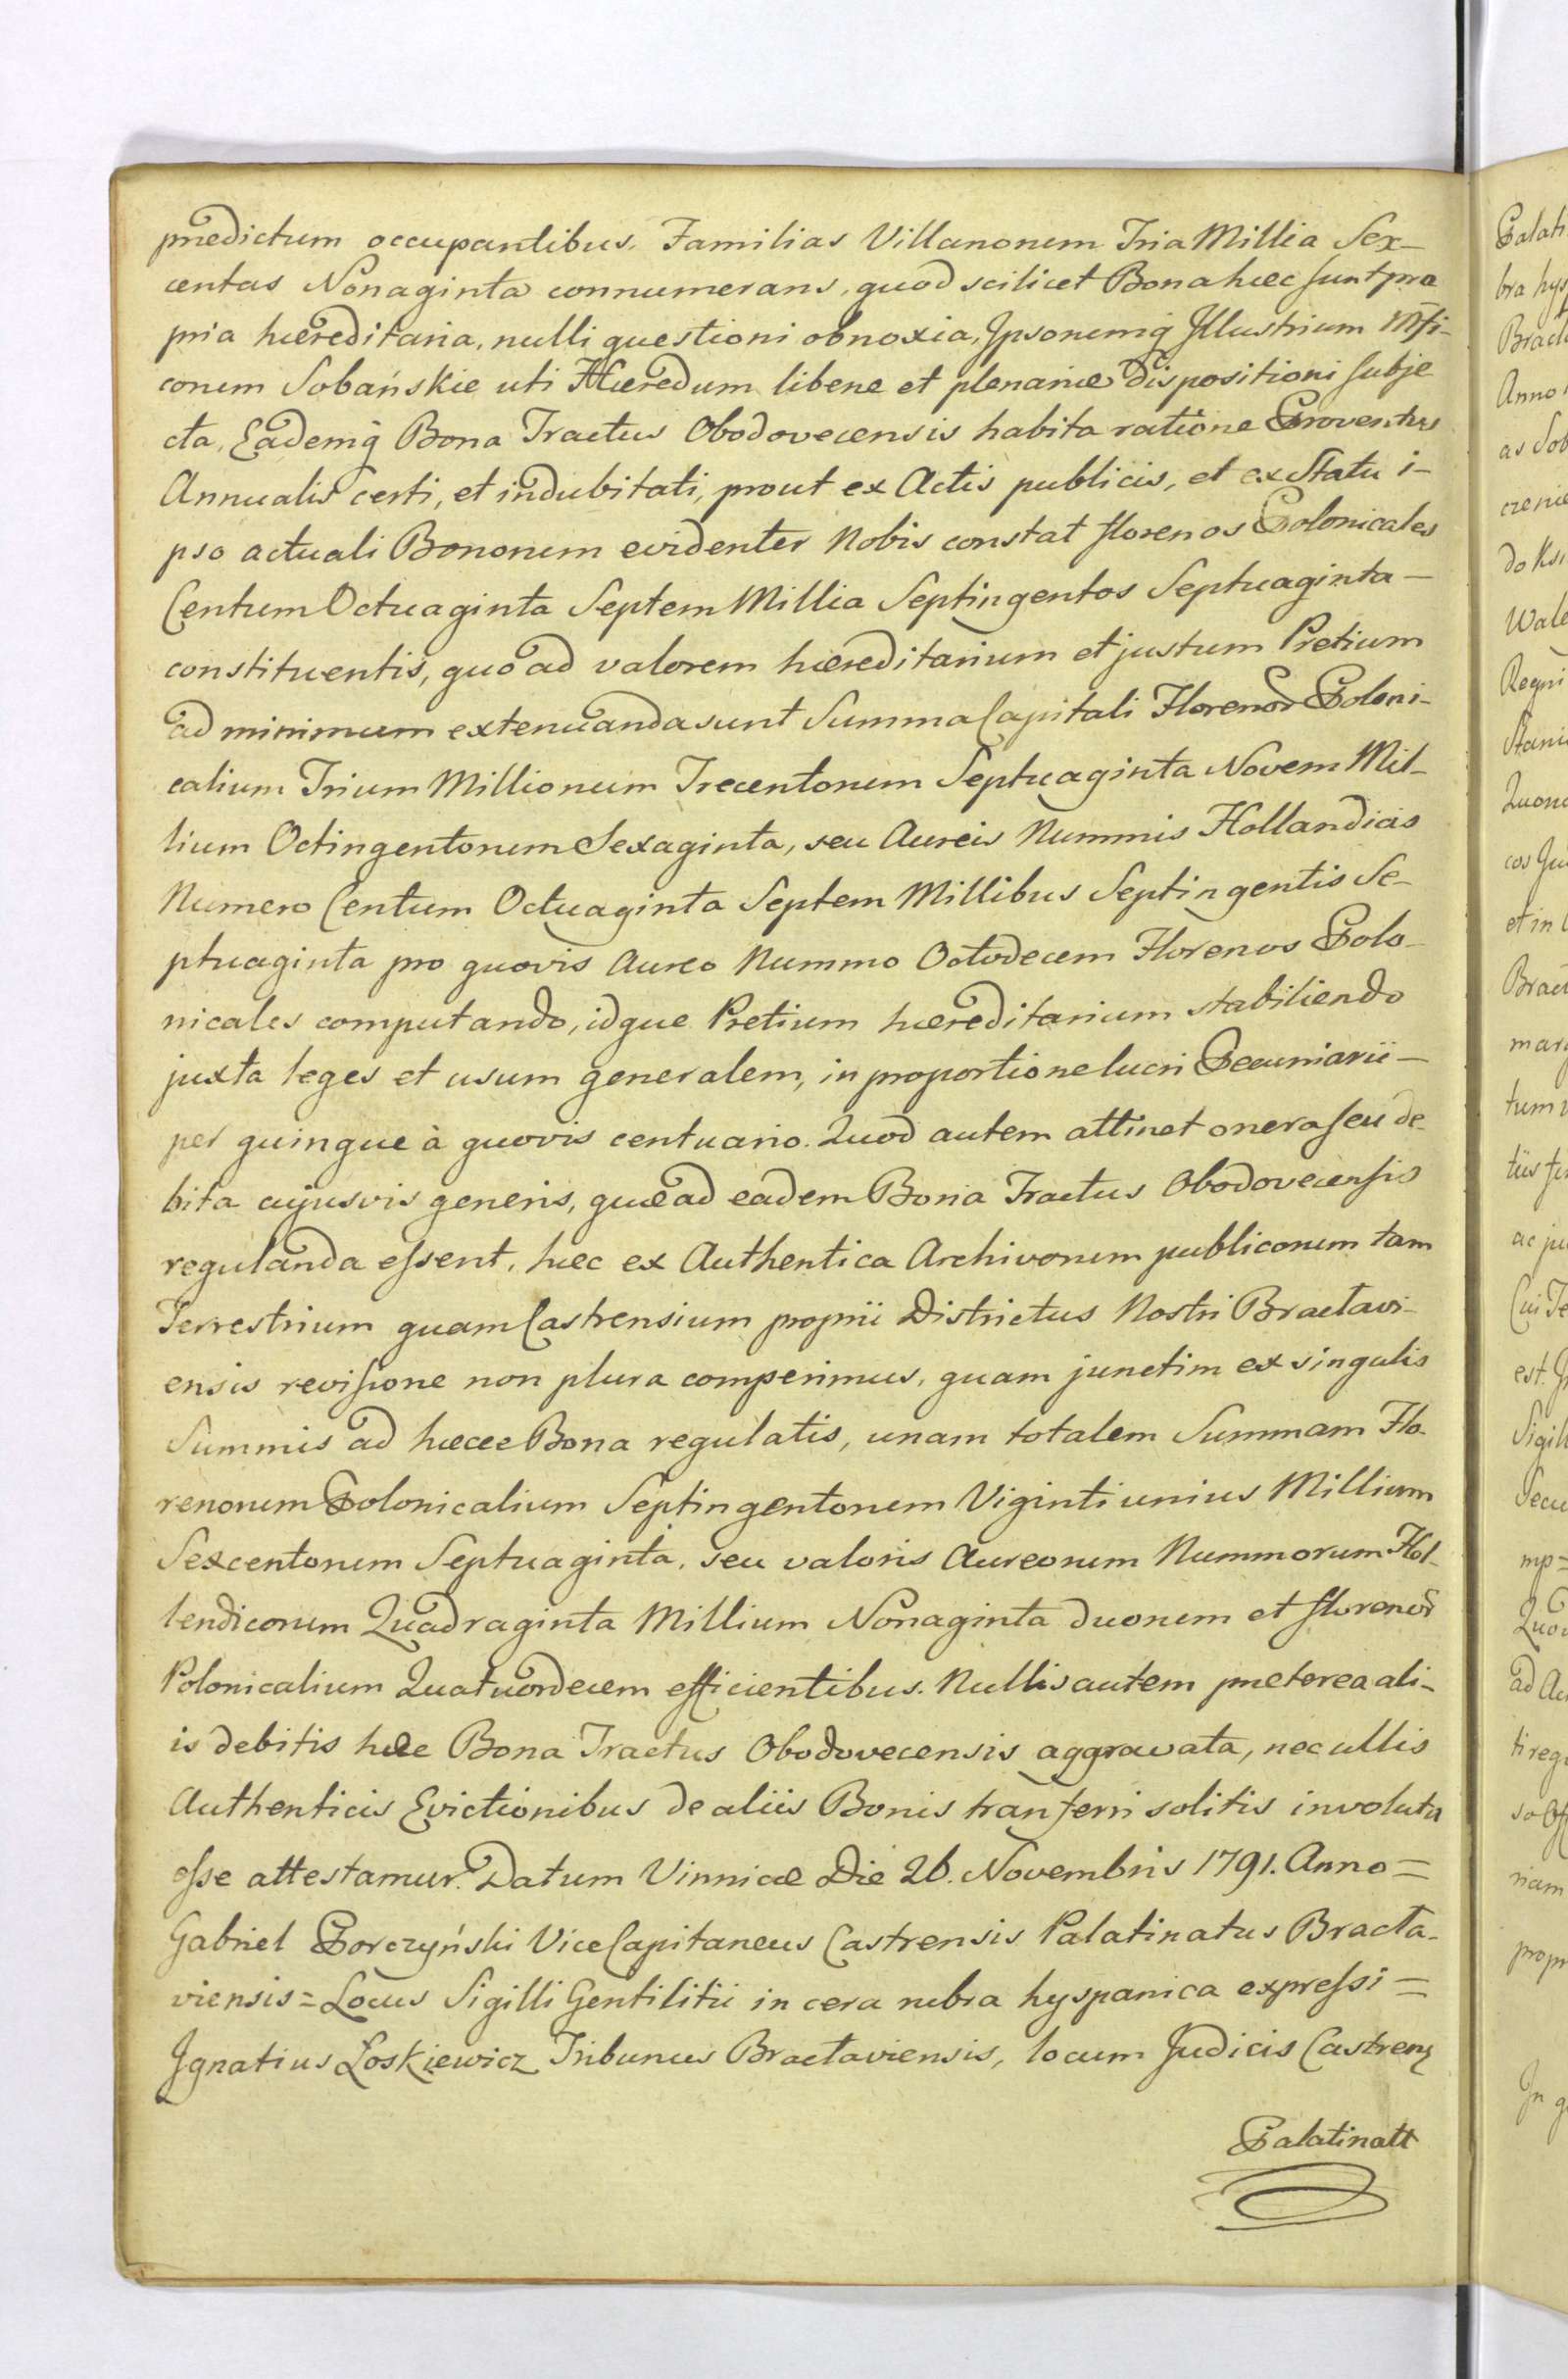 prædictum occupantibus. Familias Villanorum Tria Millia Sex-
centas Nonaginta connumerans, quod scilicet Bona hæc sunt pro
pria hæreditaria, nulli questioni obnoxia, Ipsorumq̃ Illustrium Mfi-
corum Sobańskie uti Hæredum libere et plenariæ dispositioni subje
cta, Eademq̃ Bona Tractus Obodovecensis habita ratione Proventus
Annualis certi, et indubitati, prout ex Actis publicis, et ex Statu i-
pso actuali Bonorum evidenter Nobis constat florenos Polonicales
Centum Octuaginta Septem Millia Septingentos Septuaginta –
constituentis, quo ad valorem hæreditarium et justum Pretium
ad minimum extenuanda sunt Summa Capitali Florenor Poloni-
calium Trium Millionum Trecentorum Septuaginta Novem Mil-
lium Octingentorum Sexaginta, seu Aureis Nummis Hollandicis
Numero Centum Octuaginta Septem Millibus Septingentis Se-
ptuaginta pro quovis Aureo Nummo Octodecem Florenos Polo-
nicales computando, idque Pretium hæreditarium stabiliendo
juxta leges et usum generalem, in proportione lucri Pecuniarii –
per quinque à quovis centuario. Quod autem attinet onera seu de-
bita cujusvis generis, quæ ad eadem Bona Tractus Obodovecensis
regulanda essent, hæc ex Authentica Archivorum publicorum tam
Terrestrium quam Castrensium proprii Districtus Nostri Bractavi-
ensis revisione non plura comperimus, quam junctim ex singulis
Summis ad hæcce Bona regulatis, unam totalem Summam Flo-
renorum Polonicalium Septingentorum Viginti unius Millium
Sexcentorum Septuaginta, seu valoris Aureorum Nummorum Hol-
lendicorum Quadraginta Millium Nonaginta duorum et florenor
Polonicalium Quatuordecem efficientibus. Nullis autem præterea ali-
is debitis hæc Bona Tractus Obodovecensis aggravata, nec ullis
Authenticis Evictionibus de aliis Bonis tranferri solitis involuta
esse attestamur. Datum Vinnicæ Die 26. Novembris 1791. Anno =
Gabriel Porczyński ViceCapitaneus Castrensis Palatinatus Bracta-
viensis = Locus Sigilli Gentilitii in cera rubra hyspanica expressi =
Ignatius Łoskiewicz Tribunus Bractaviensis, locum Judicis Castren
Palatinatt